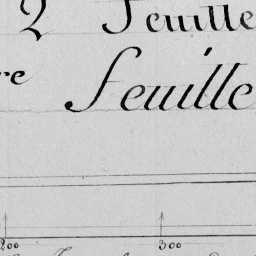 2 Feuille
re Feuille
200 300